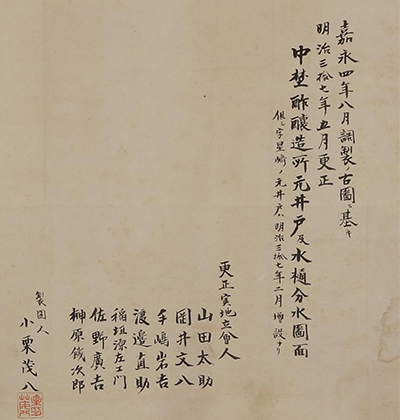 嘉永四年八月調製ノ古圖ニ基キ
明治三拾七年五月更正
中埜酢醸造所元井戸及水樋分水圖面
但シ字星崎ノ元井戸ハ明治三拾七年二月増設ナリ
更正実地立會人
山田太助
岡井文八
手嶋岩吉
渡邉直助
稲垣源左エ門
佐野廣吉
榊原鐵次郎
製圖人
小栗茂八